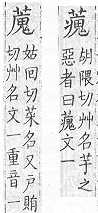 隈切艸名芋之
惡者曰文一
姑回切菜名又戶賄
切艸名文一重音一